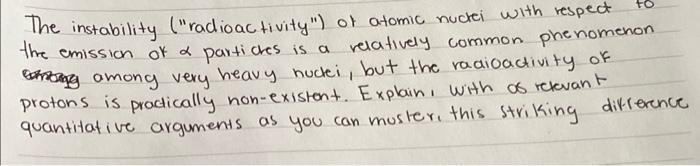 The instability ("radioactivity") of atomic nuclei with respect to
the emission of α particles is a relatively common phenomenon
among very heavy nuclei, but the radioactivity of
protons is practically non-existent. Explain, with as relevant
quantitative arguments as you can muster, this striking difference